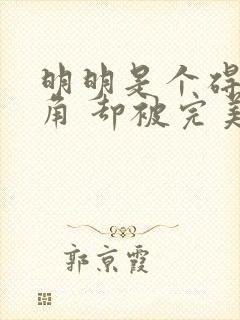 明明是个碍
角 却被完美
郭京霞